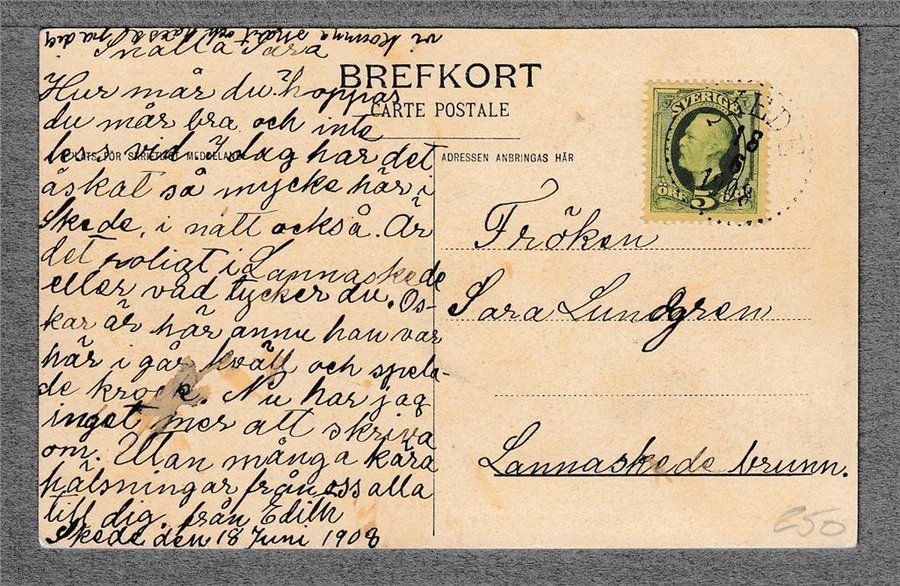 vi komma snart och hälsa på dig
Snälla Sara
BREFKORT
CARTE POSTALE
Hur mår du? hoppas
du mår bra och inte
leds vid. I dag har det
PLATS FÖR SKRIFTLIGT MEDDELANDE
åskat så mycke här i
Skede, i natt också. Är
det roligt i Lannaskede
eller vad tycker du. Os-
kar är här ännu han var
här i går kväll och spela-
de krock. Nu har jag
inget mer att skriva
om. Utan många kära
hälsningar från oss alla
till dig. från Edith
Skede den 18 Juni 1908
ADRESSEN ANBRINGAS HÄR
SVERIGE
ÖRE 5 ÖRE
SKEDE
18
6
1908
Fröken
Sara Lundgren
Lannaskede brunn.
250